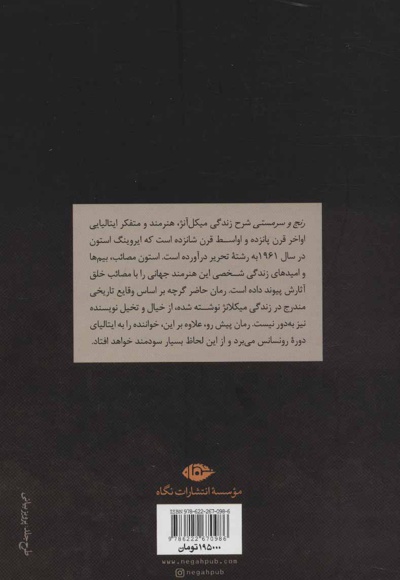 رنج و سرمستی شرح زندگی میکل‌آنژ، هنرمند و متفکر ایتالیایی
اواخر قرن پانزده و اواسط قرن شانزده است که ایروینگ استون
در سال ۱۹۶۱ به رشتهٔ تحریر درآورده است. استون مصائب، بیم‌ها
و امیدهای زندگی شخصی این هنرمند جهانی را با مصائب خلق
آثارش پیوند داده است. رمان حاضر گرچه بر اساس وقایع تاریخی
مندرج در زندگی میکلانژ نوشته شده، از خیال و تخیل نویسنده
نیز به‌دور نیست. رمان پیش رو، علاوه بر این، خواننده را به ایتالیای
دورهٔ رونسانس می‌برد و از این لحاظ بسیار سودمند خواهد افتاد.
مؤسسهٔ انتشارات نگاه
ISBN: 978-622-267-098-6
9 786222 670986
۱۹۵۰۰۰ تومان
www.negahpub.com
negahpub
طرح جلد: پرویز بیانی